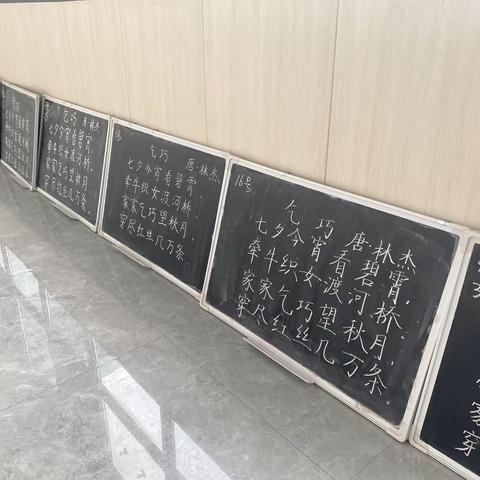 乞巧
唐·林杰
七夕今宵看碧霄,
牵牛织女渡河桥。
家家乞巧望秋月,
穿尽红丝几万条。
乞巧
唐·林杰
七夕今宵看碧霄,
牵牛织女渡河桥。
家家乞巧望秋月,
穿尽红丝几万条。
16号
乞巧
唐·林杰
七夕今宵看碧霄,
牵牛织女渡河桥。
家家乞巧望秋月,
穿尽红丝几万条。
家
穿